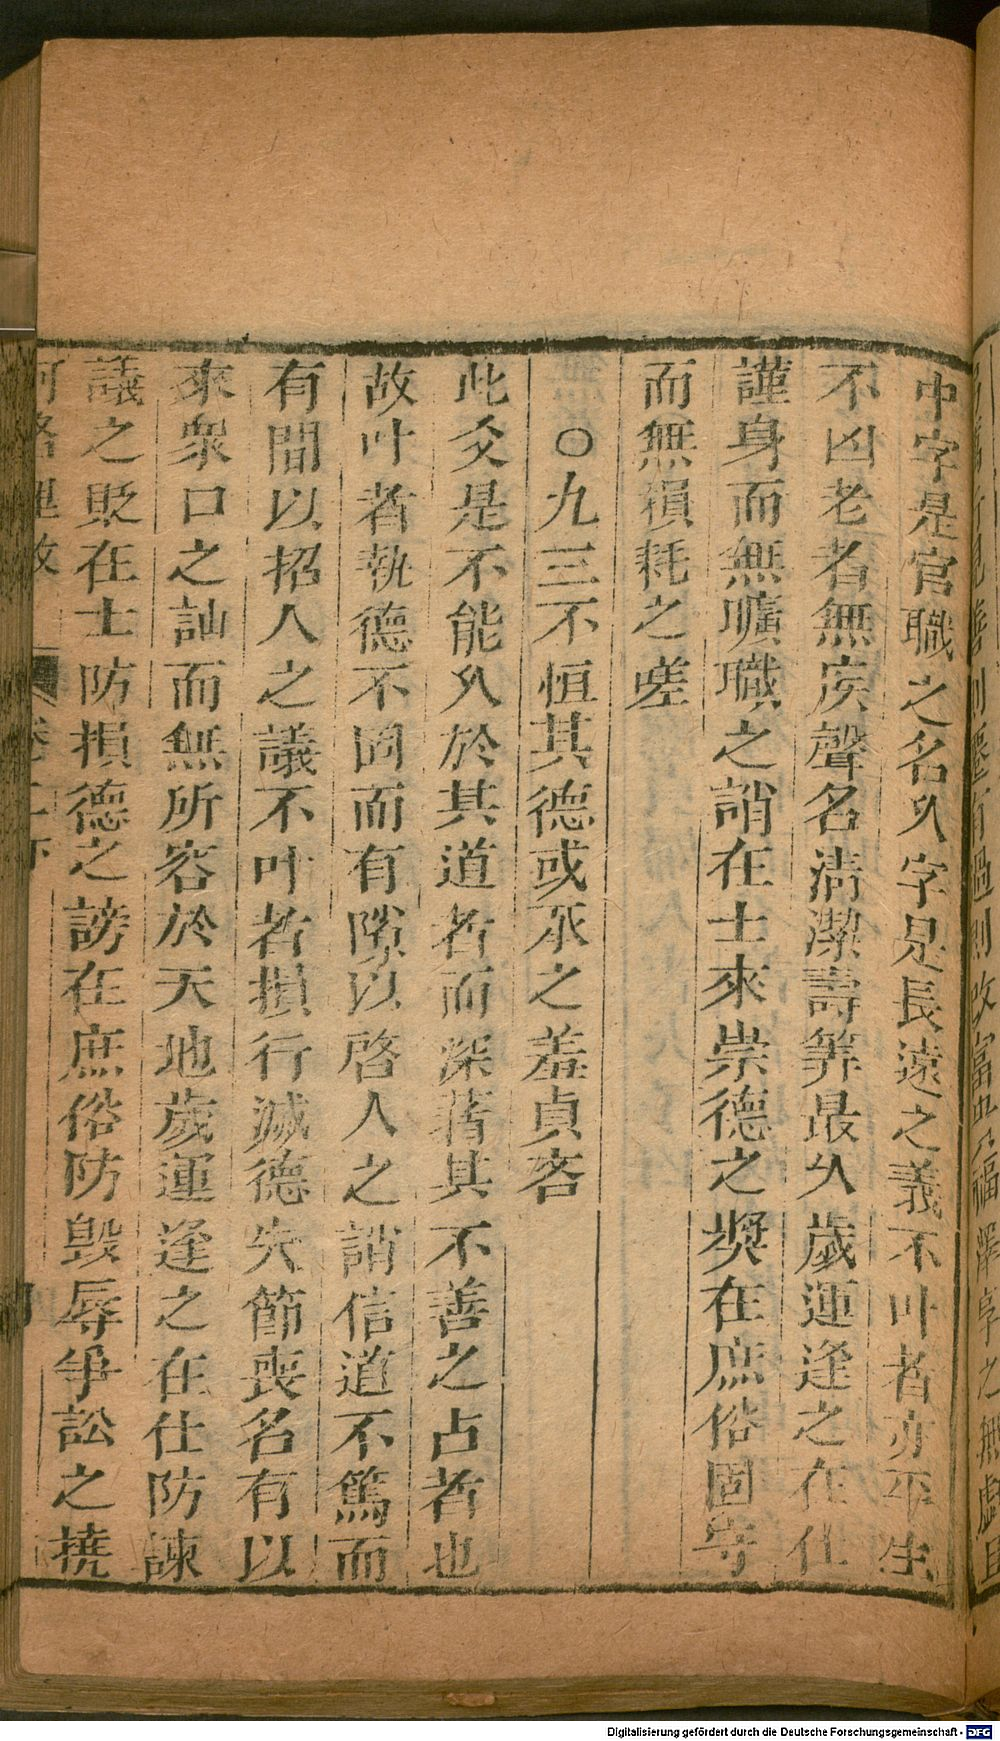 中字是官職之名久字是長遠之義不叶者亦平生
不凶老者無疾聲名清潔壽筭最久歲運逢之在仕
謹身而無曠職之誚在士來崇德之奬在庶俗固守
而無損耗之嗟
○九三不恒其德或承之羞貞吝
此爻是不能久於其道者而深著其不善之占者也
故叶者執德不固而有隙以啓人之誚信道不篤而
有間以招人之議不叶者損行滅德失節喪名有以
來衆口之訕而無所容於天地歲運逢之在仕防諫
議之貶在士防損德之謗在庶俗防毀辱爭訟之撓
河洛理數
卷二下
Digitalisierung gefördert durch die Deutsche Forschungsgemeinschaft - DFG